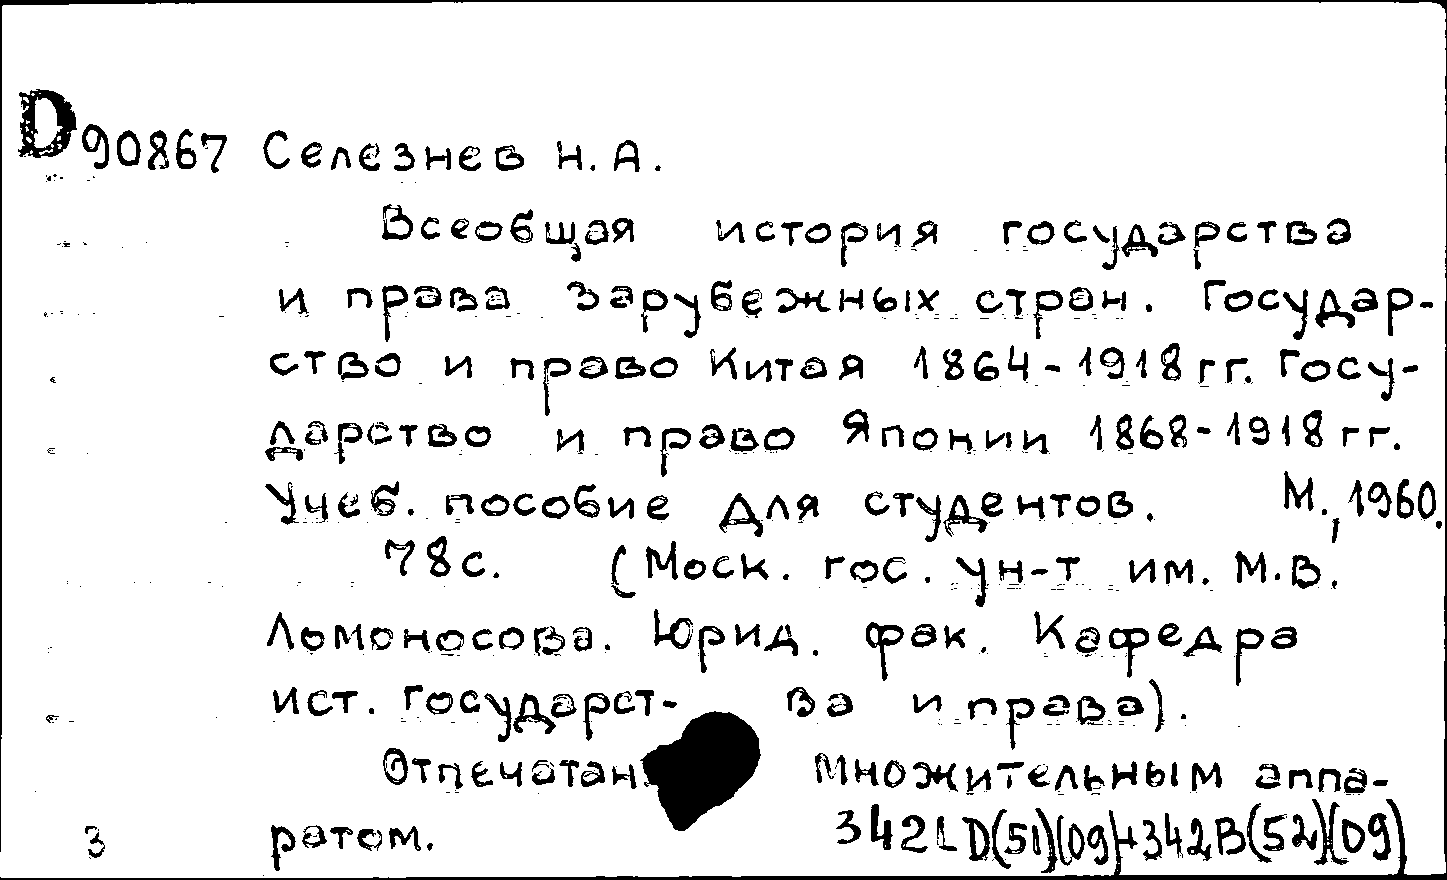 D90867 Селезнев Н. А.
Всеобщая история государства
и права зарубежных стран. Государ-
ство и право Китая 1864-1918 гг. Госу-
дарство и право Японии 1868-1918 гг.
Учеб. пособие для студентов. М., 1960.
78 с. (Моск. гос. ун-т им. М.В.
Ломоносова. Юрид. фак. Кафедра
ист. государст- ва и права).
множительным аппа-
3 ратом.